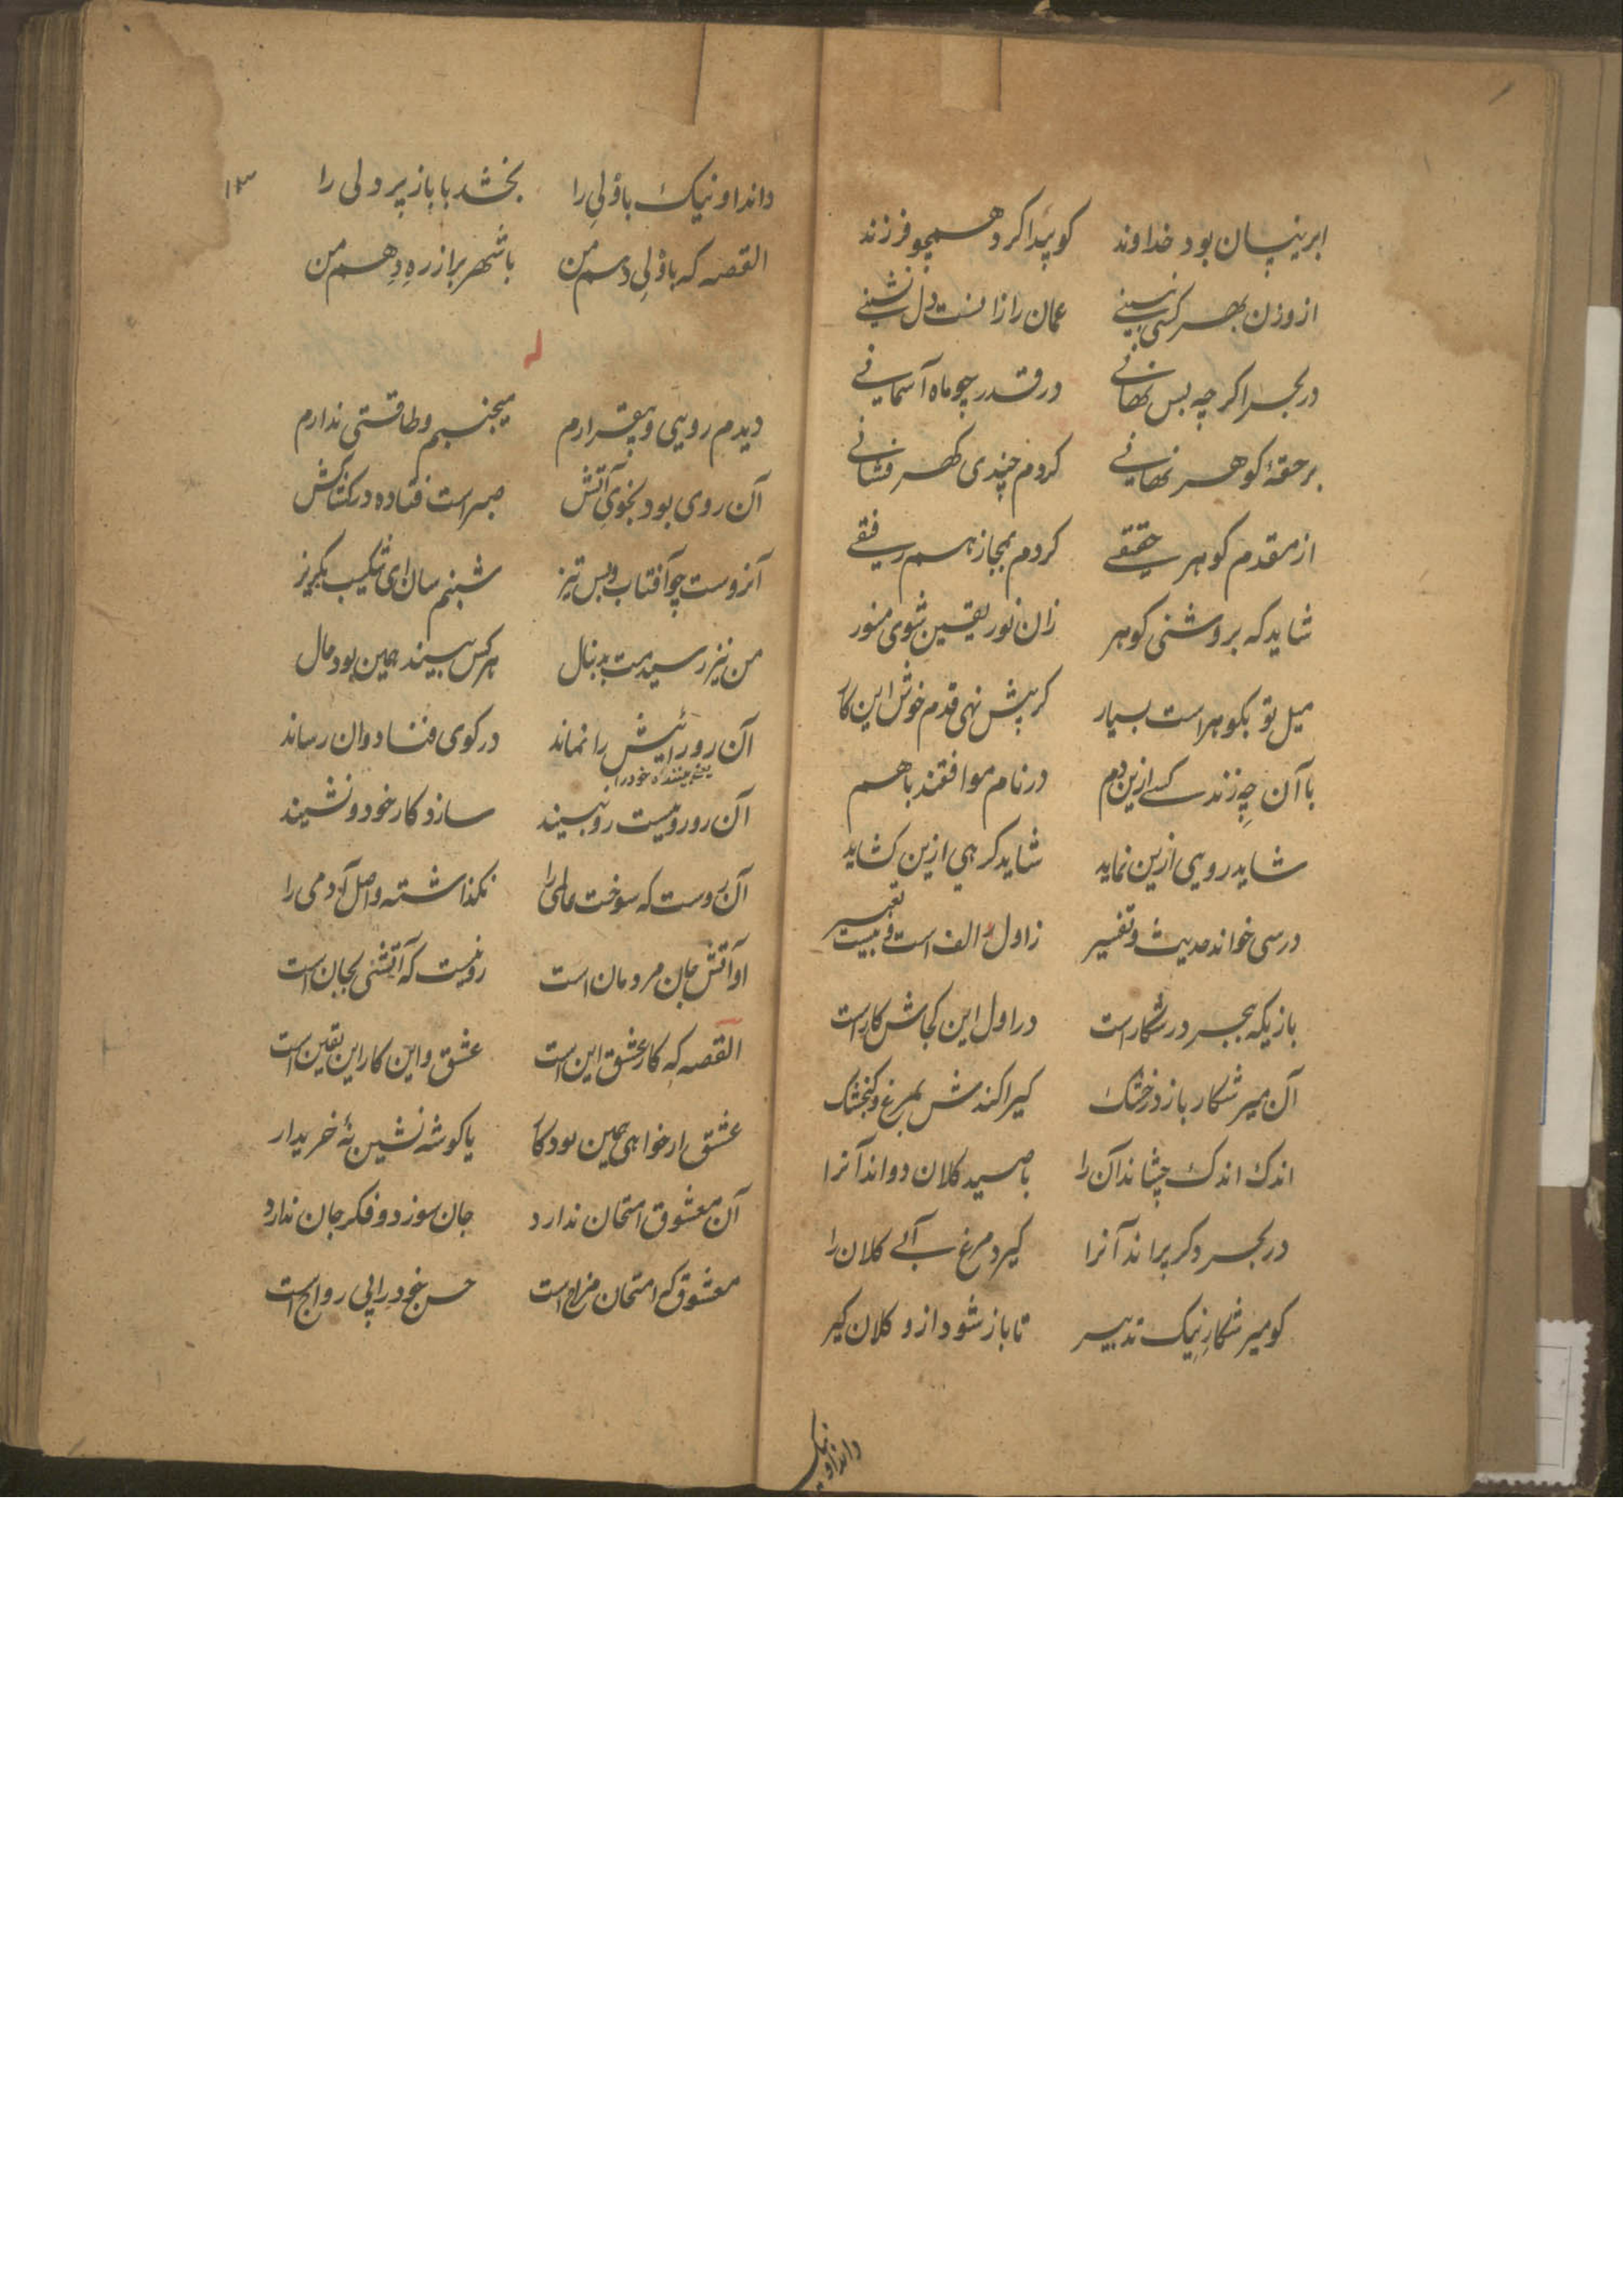 ابر نیسان بود خداوند کو پیدا کرد همچو فرزند
از وزن بهر کسی نشینی
در بحر اکرچه بس نهانی در قدر چو ماه آسمانی
بر حقهٔ کوهر نهانی کردم چندی کهر فشانی
از مقدم کوهر حقیقی کردم بمجاز هم رفیقی
شاید که بروشنی کوهر زان نور یقین شوی منور
میل تو بکوهر است بسیار کر پیش نهی قدم خوش این کار
با آن چه زند کسی ازین دم در نام موافقند با هم
شاید رویی ازین نماید شاید کرهی ازین کشاید
درسی خواند حدیث و تفسیر ز اول الف است و بیست تعبیر
بازیکه ببحر در شکار است در اول این کجاش کار است
آن میر شکار باز در خشک کیرا کندش بمرغ و کنجشک
اندک اندک چشاند آن را با صید کلان دواند آنرا
در بحر دکر پراند آنرا کیرد مرغ آبی کلان را
کو میر شکار نیک تدبیر تا باز شود ازو کلان کیر
داند او نیک
۱۳
داند او نیک باؤلی را بخشد با باز پر ولی را
القصه که باؤلی دهم من با شهپر باز ره دهم من
دیدم رویی و بیقرارم میجنبم و طاقتی ندارم
آن روی بود بخوی آتش صبر است فتاده در کشاکش
آنروست چو آفتاب و بس تیز شبنم سان ای شکیب بکریز
من نیز رسیدمت بدنبال هر کس بیند همین بود حال
آن رو رائیش را نماند در کوی فنا دوان رساند
یعنی بیننده خود را
آن رو رو نیست رو ببیند سازد کار خود و نشیند
آن روست که سوخت عالمی را نکذاشته واصل آدمی را
او آتش جان مردمان است رو نیست که آتشی بجان است
القصه که کار عشق این است عشق و این کار این یقین است
عشق ار خواهی همین بود کار یا کوشه نشین نهٔ خریدار
آن معشوق امتحان ندارد جان سوزد و فکر جان ندارد
معشوق که امتحان مزاج است حسن خود را پی رواج است